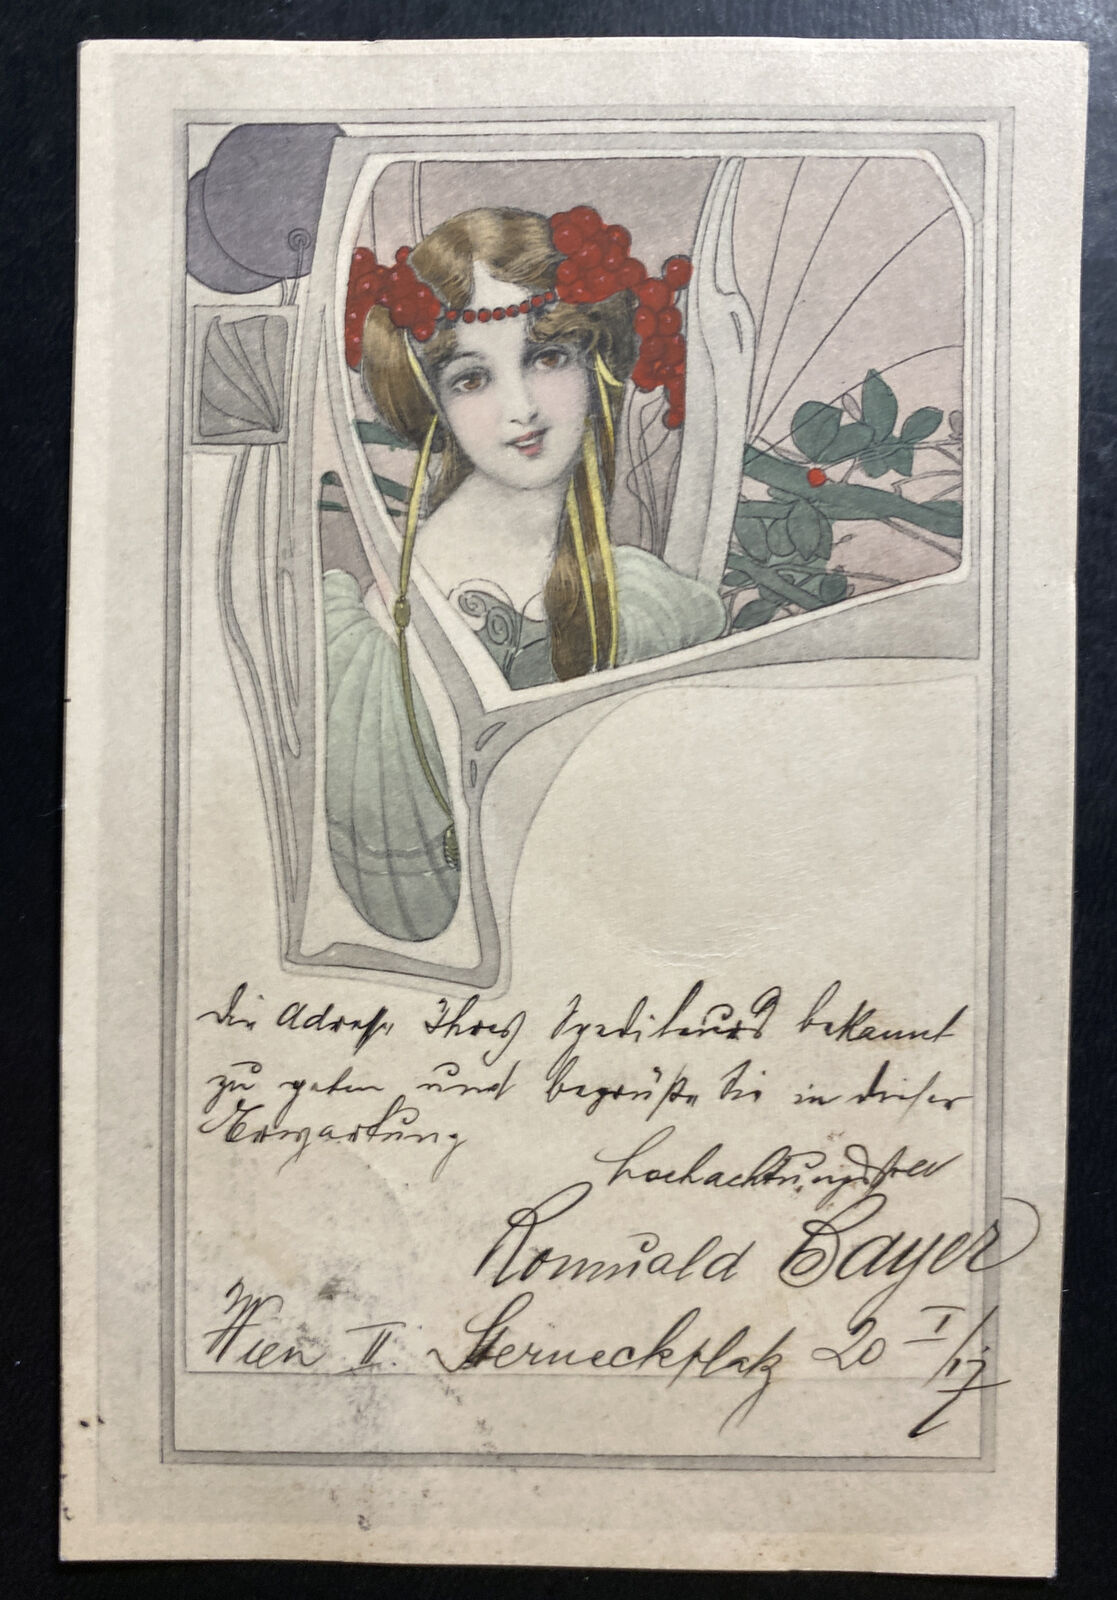 die Adresse Ihres Spediteurs bekannt
zu geben und begrüße Sie in dieser
Erwartung
hochachtungsvoll
Romuald Bayer
Wien II. Sterneckplatz 20 I/17